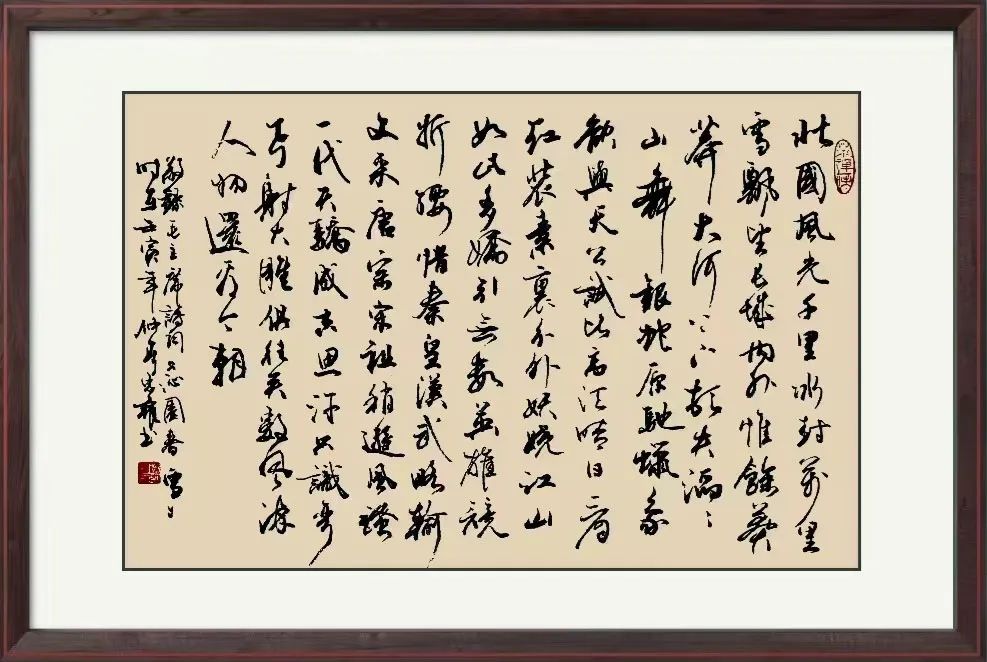 北國風光千里冰封萬里
雪飄望長城內外惟餘莽
莽大河上下頓失滔〻
山舞銀蛇原馳蠟象
欲與天公試比高須晴日看
紅裝素裹分外妖嬈江山
如此多嬌引無數英雄競
折腰惜秦皇漢武略輸
文采唐宗宋祖稍遜風騷
一代天驕成吉思汗只識彎
弓射大雕俱往矣數風流
人物還看今朝
敬錄毛主席詩詞沁園春雪
時在壬寅年仲夏書